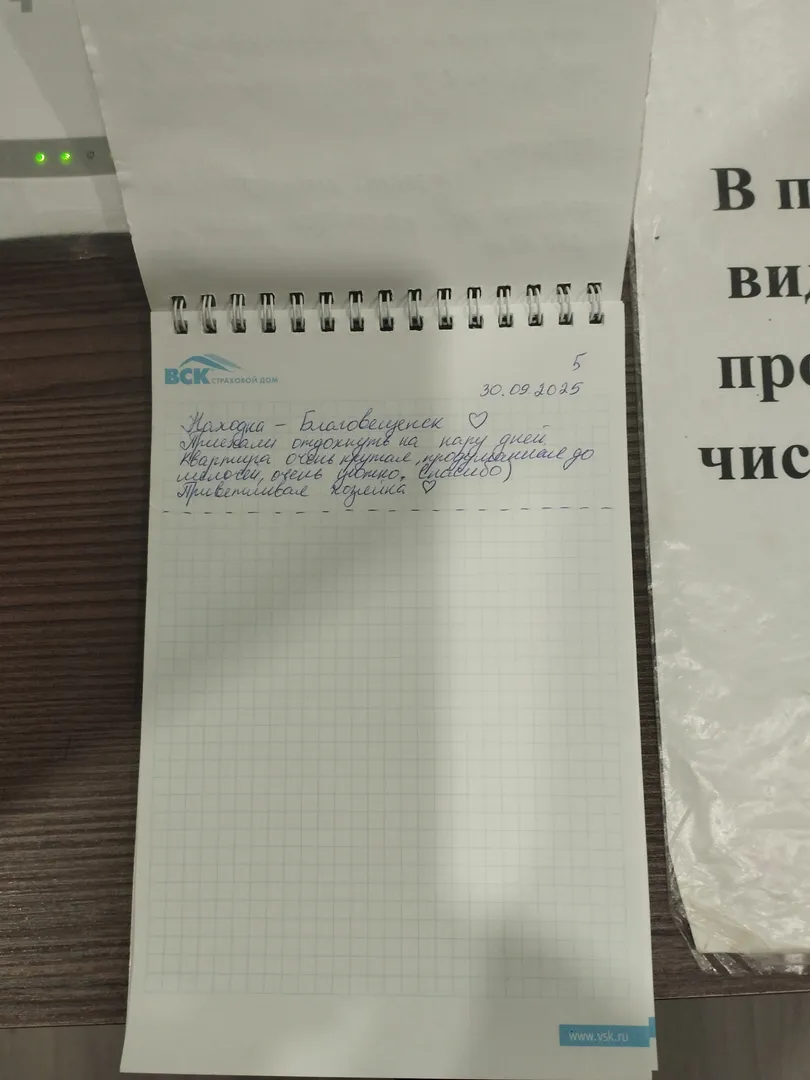 ВСК СТРАХОВОЙ ДОМ
5
30.09.2025
Находка - Благовещенск ♡
Приехали отдохнуть на пару дней
Квартира очень крутая, продуманная до
мелочей, очень уютно. Спасибо)
Приветливая хозяйка ♡
www.vsk.ru
В п
вид
про
чис